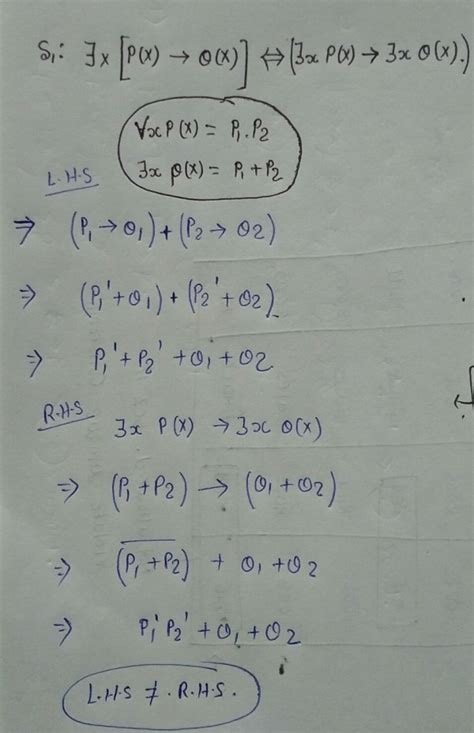 S₁: ∃x [P(x) → Q(x)] ⇔ (∃x P(x) → ∃x Q(x).)
∀x P(x) = P₁.P₂
∃x P(x) = P₁ + P₂
L.H.S
⇒ (P₁ → Q₁) + (P₂ → Q2)
⇒ (P₁' + Q₁) + (P₂' + Q2)
⇒ P₁' + P₂' + Q₁ + Q2
R.H.S
∃x P(x) → ∃x Q(x)
⇒ (P₁ + P₂) → (Q₁ + Q2)
⇒ (P̅₁̅ ̅+̅ ̅P̅₂̅) + Q₁ + Q2
⇒ P₁' P₂' + Q₁ + Q₂
L.H.S ≠. R.H.S.